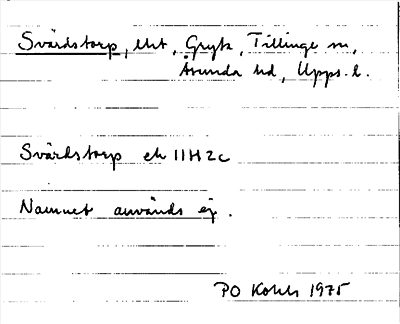 Svärdstorp, lht, Gryta, Tillinge sn,
Åsunda hd, Upps. l.
Svärdstorp ek 11H2c
Namnet används ej.
PO Kohls 1975